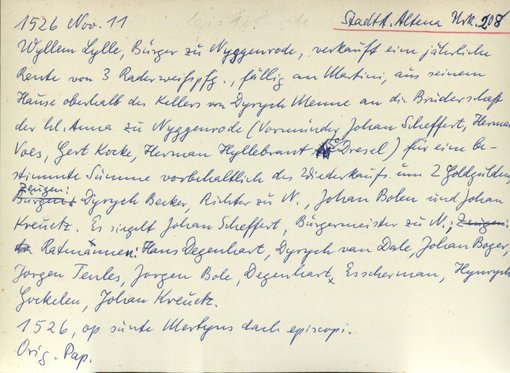 1526 Nov. 11
Stadt A. Altena Urk. 208
Wyllem Lylle, Bürger zu Nyggenrode, verkauft eine jährliche
Rente von 3 Raderweißpfg., fällig an Martini, aus seinem
Hause oberhalb des Kellers von Dyrych Menne an die Bruderschaft
der hl. Anna zu Nyggenrode (Vormünder Johan Scheffert, Herman
Voes, Gert Kocke, Herman Hyllebrant to Dresel) für eine be-
stimmte Summe vorbehaltlich des Wiederkaufs um 2 Goldgulden.
Zeugen: Dyrych Becker, Richter zu N., Johan Bolen und Johan
Kreuctz. Es siegelt Johan Scheffert, Bürgermeister zu N.,
Ratmannen: Hans Degenhart, Dyrych van Dale, Johan Boger,
Jorgen Tentes, Jorgen Bole, Degenhart Esscherman, Hynrych
Gockelen, Johan Kreuctz.
1526, op sunte Mertyns dach episcopi.
Orig. Pap.